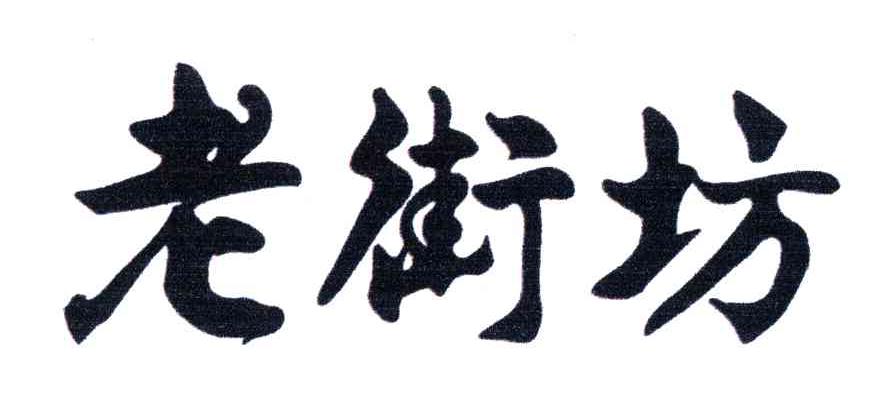 老街坊